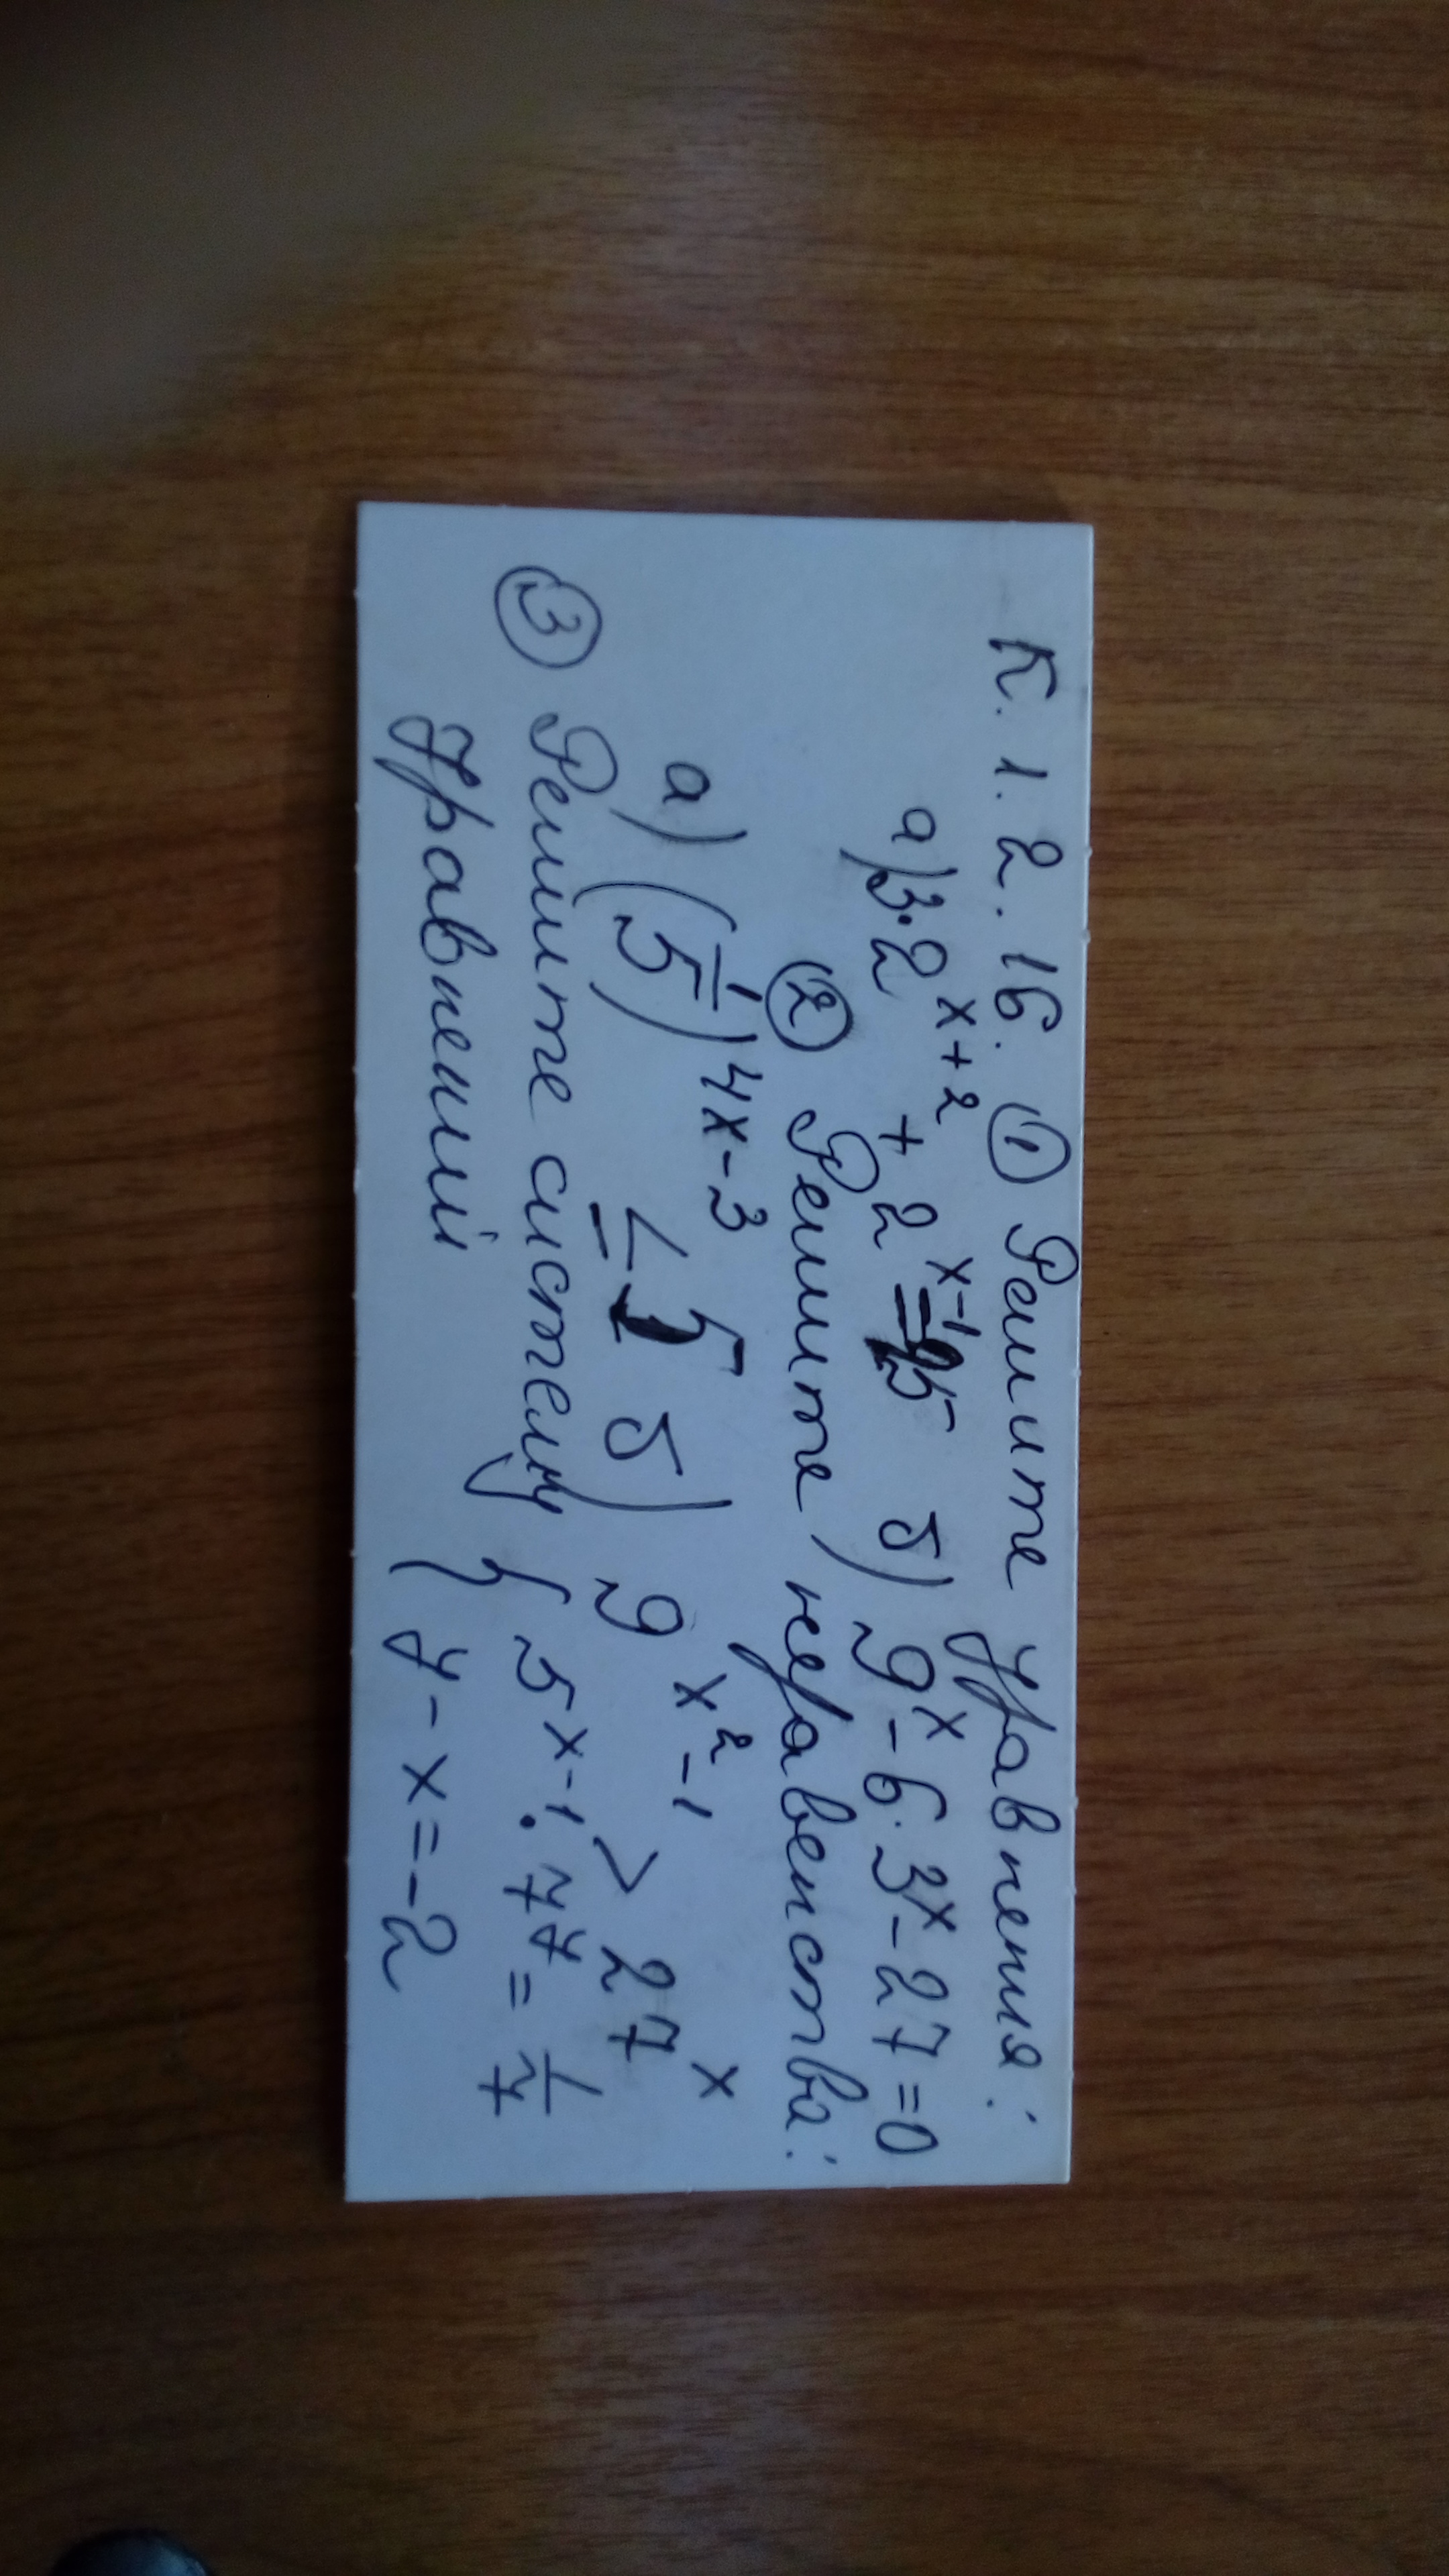 К. 1. 2. 16. ① Решите уравнения:
а) 3·2^(x+2) + 2^(x-1) = 25 б) 9^x - 6·3^x - 27 = 0
② Решите неравенства:
а) (1/5)^(4x-3) ≤ 5 б) 9^(x²-1) > 27^x
③ Решите систему { 5^(x-1) · 7^y = 1/7
уравнений { y - x = -2